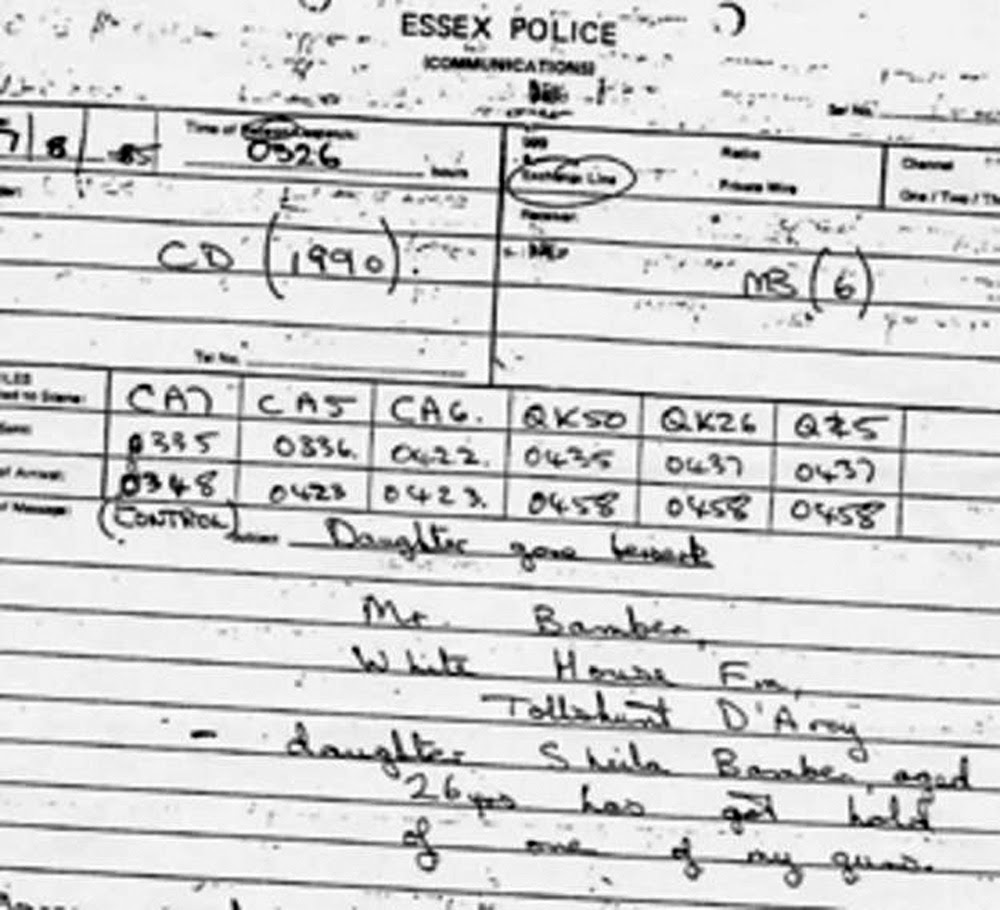 ESSEX POLICE
(COMMUNICATIONS)
7 8 85
Time of
0326
hours
Exchange Line
Radio
Private Wire
Channel
CD (1990)
MB (6)
Tel No.
CA7 CA5 CA6. QK50 QK26 QZ5
0335 0336. 0422. 0435 0437 0437
0348 0423 0423. 0458 0458 0458
(CONTROL)
Daughter gone berserk
Mr. Bamber,
White House Fm,
Tolleshunt D'Arcy
- daughter Sheila Bamber, aged
26 yrs has got hold
of one of my guns.